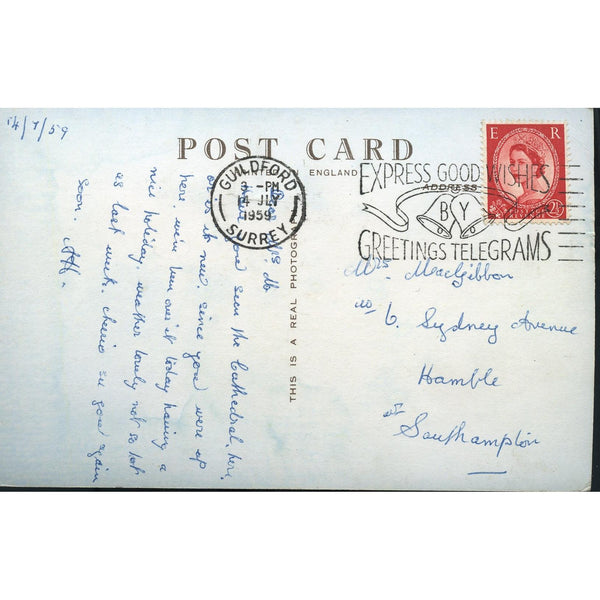 14/7/59
POST CARD
ENGLAND
THIS IS A REAL PHOTOGRAPH
GUILDFORD
3 - PM
14 JLY
1959
SURREY
EXPRESS GOOD WISHES
ADDRESS
BY
GREETINGS TELEGRAMS
E R
2½
Dear Mrs Mc
seen the Cathedral, here
it new since you were up
here were over it today having a
nice holiday. weather lovely not so hot
as last week. cheerio see you again
soon.
Mrs. MacGibbon
6. Sydney Avenue
Hamble
Southampton